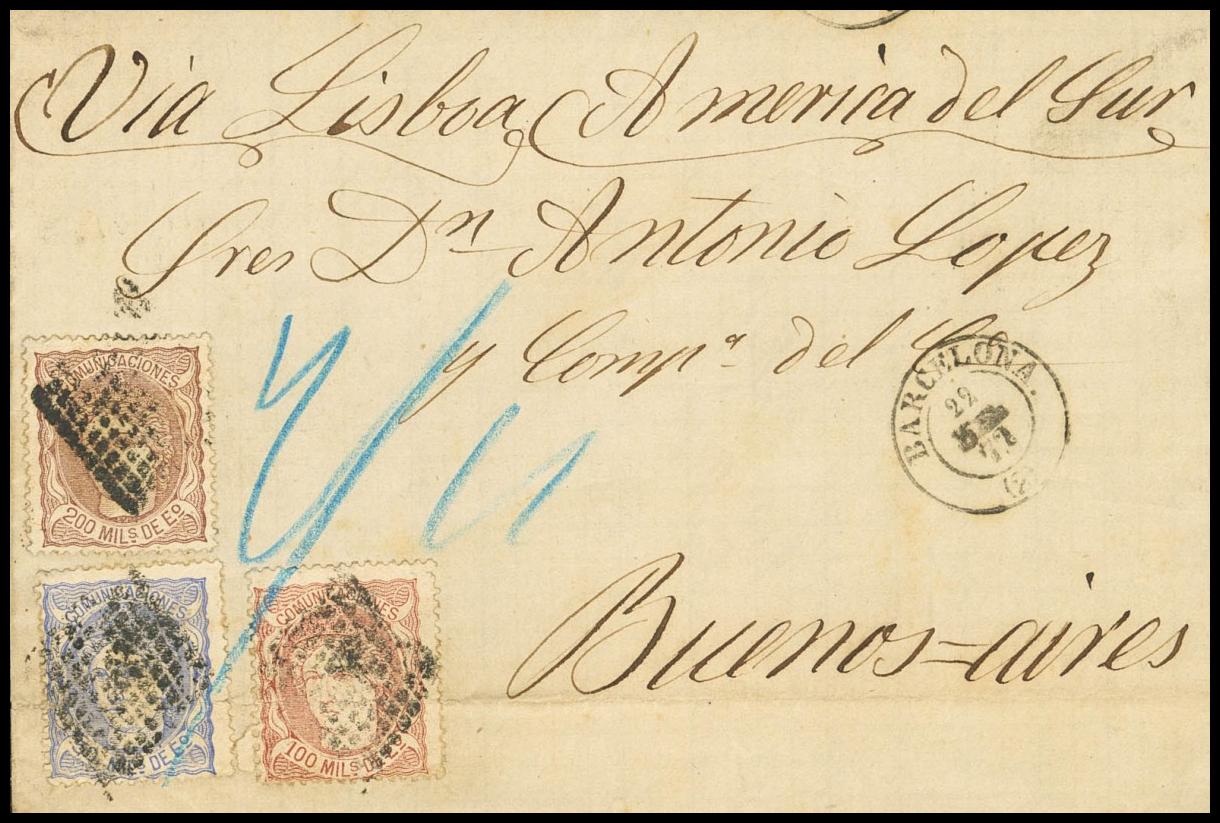 Via Lisboa America del Sur
Sres Dn Antonio Lopez
y Compª del
BARCELONA.
22
71
(2)
COMUNICACIONES
200 MILS. DE Eº
COMUNICACIONES
MILS. DE Eº
COMUNICACIONES
100 MILS. DE Eº
Buenos=aires